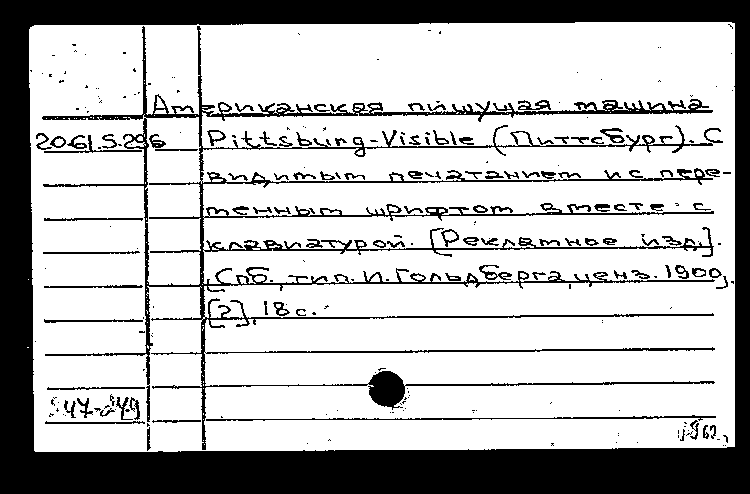 Американская пишущая машина
20.61.5.296 Pittsburg-Visible (Питтсбург). С
видимым печатанием и с пере-
менным шрифтом вместе с
клавиатурой. [Рекламное изд.].
Спб., тип. И. Гольдберга, ценз. 1900,
[2], 18 с.